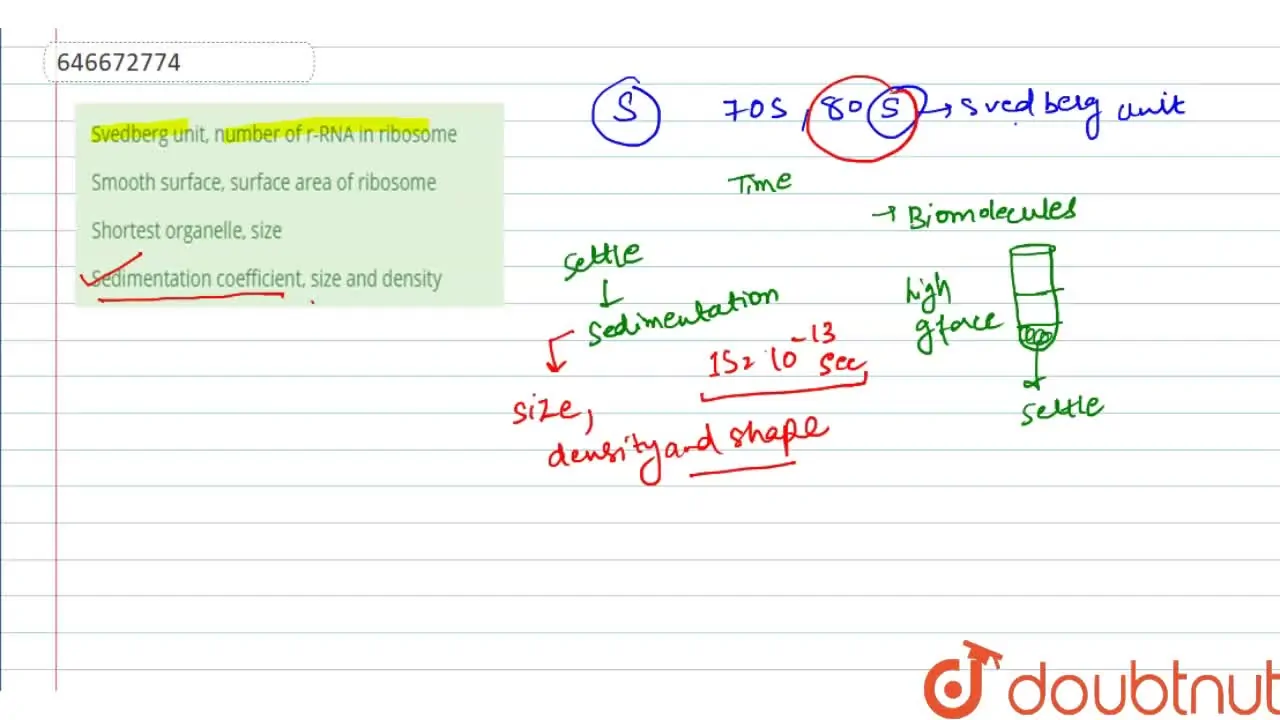 646672774
Svedberg unit, number of r-RNA in ribosome
Smooth surface, surface area of ribosome
Shortest organelle, size
Sedimentation coefficient, size and density
S 70S, 80S → svedberg unit
Time
→ Biomolecules
settle
sedimentation
high
gforce
settle
1S = 10⁻¹³ sec
size,
density and shape
doubtnut